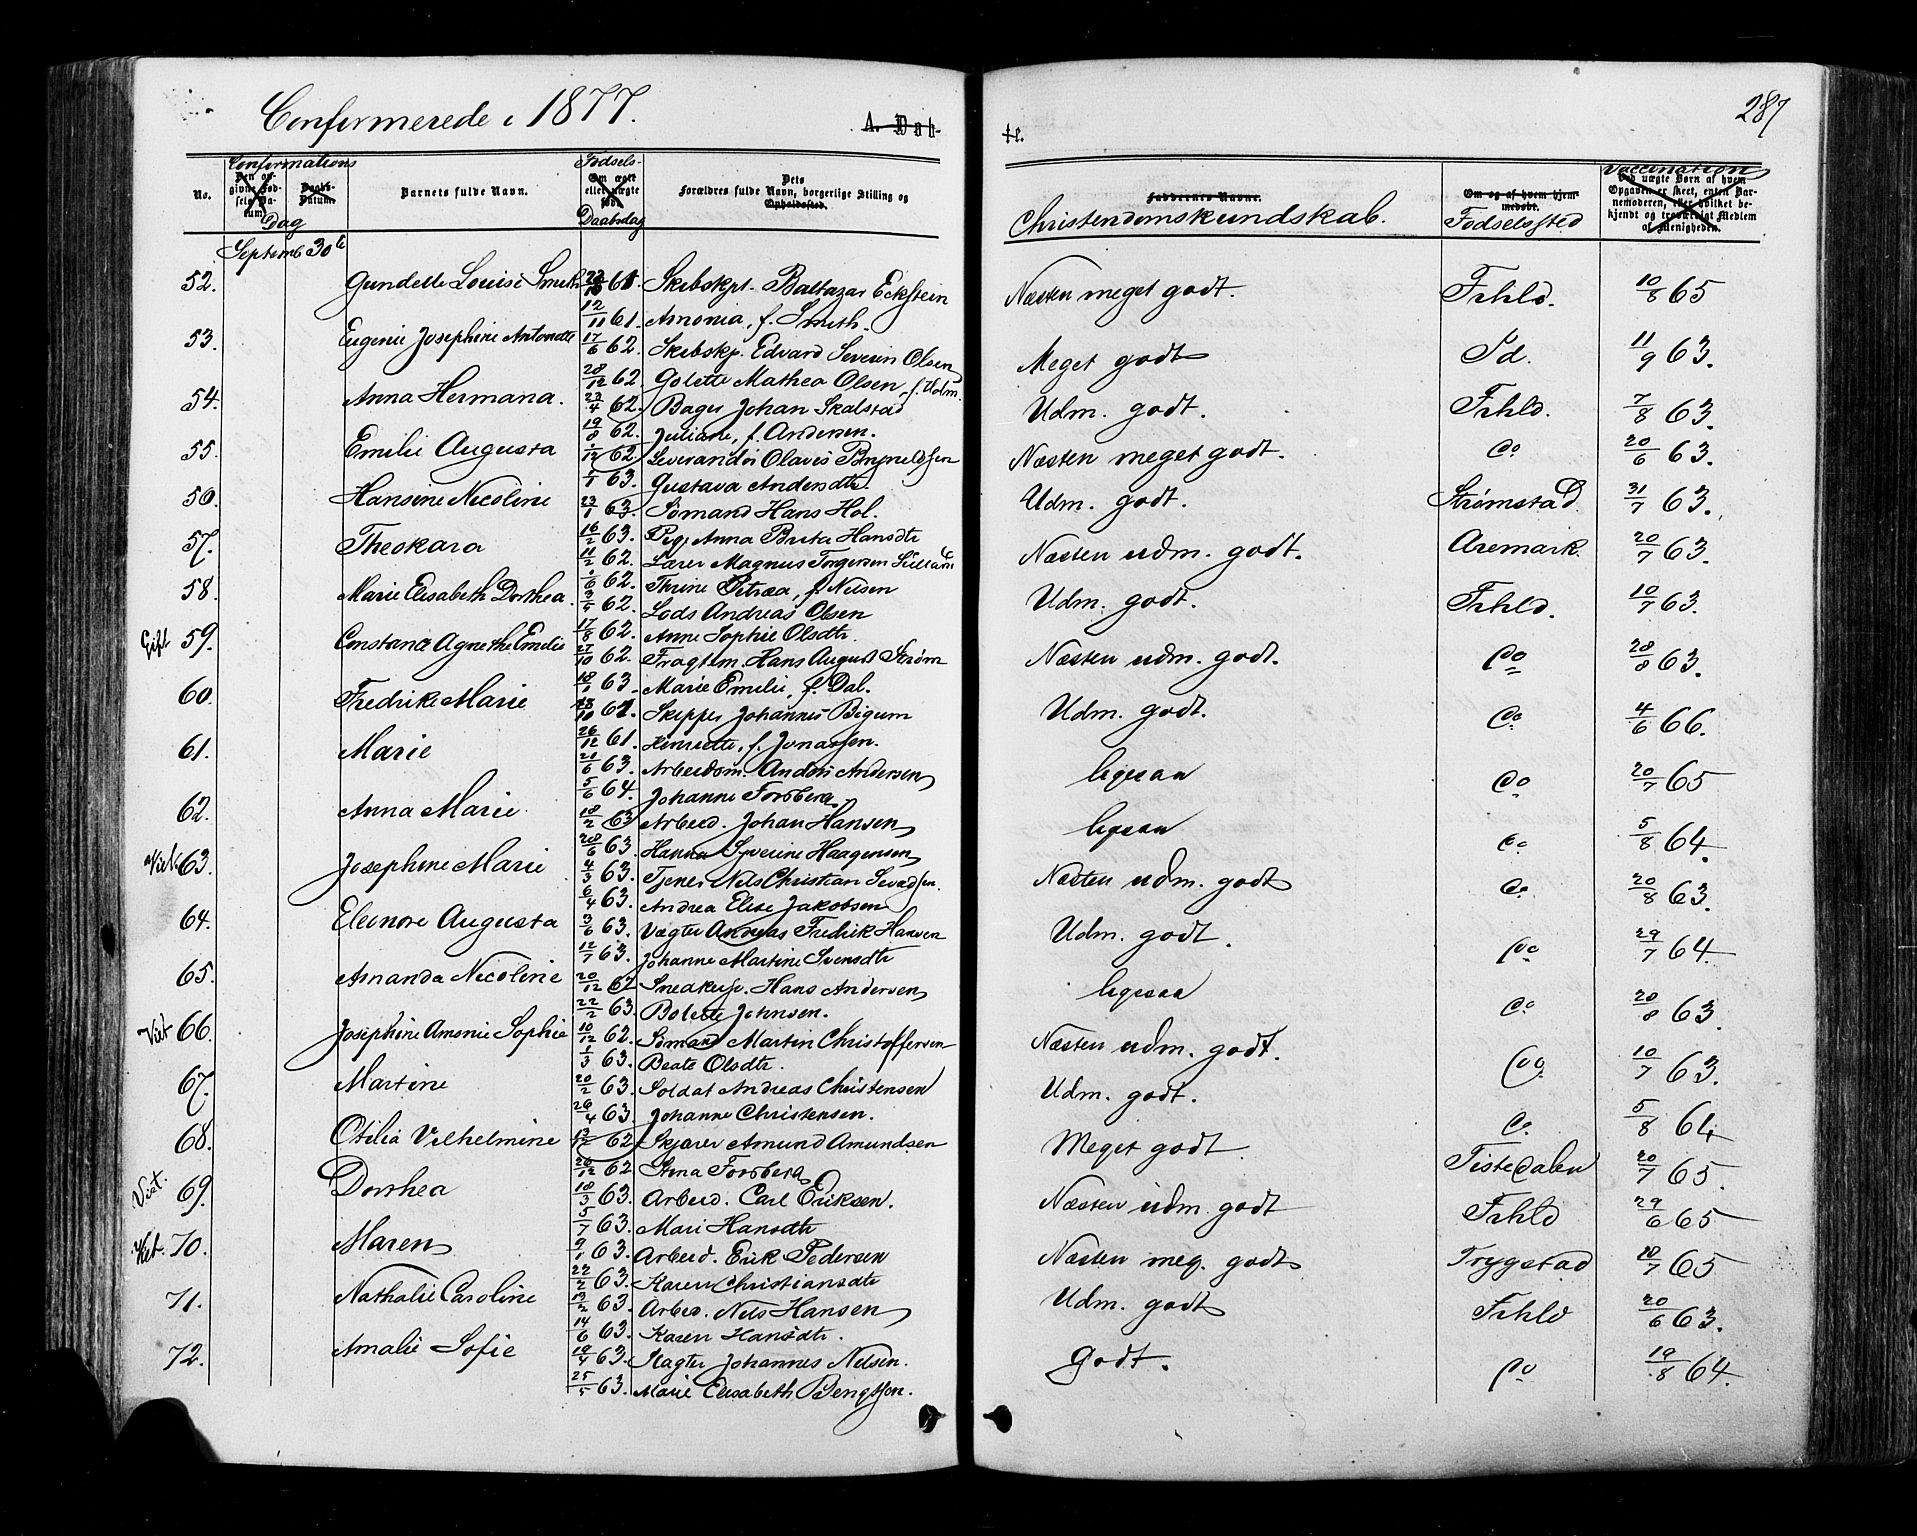 Confermerede i 1877.
A. Døb-
te.
287
No.
Confermations
Dag
Barnets fulde Navn.
Fødsels-
Daabsdag
Dets
Forældres fulde Navn, borgerlige Stilling og
Opholdssted.
Faddernes Navne.
Christendomskundskab.
Om og af hvem hjem-
medøbt.
Fødselssted
Vaccination
Septemb 30te
52. Gundelle Louise Smith 61. Skibskpt. Baltazar Eckstein Næsten meget godt. Frhld. 10/8 65
12/11 61. Amonia, f. Smith.
53. Eugenie Josephine Antonette 17/6 62. Skibskp. Edvard Severin Olsen Meget godt Fd. 11/9 63.
28/12 62. Golette Mathea Olsen, f. Holm.
54. Anna Hermana. 23/4 62. Bager Johan Skalstad Udm. godt. Frhld. 7/8 63.
19/8 62. Juliane, f. Andersen.
55. Emilie Augusta 1/12 62. Leverandør Olavus Brynildsen Næsten meget godt. do 20/6 63.
1/1 63. Gustava Andersdtr.
56. Hansine Nicoline 23/1 63. Sømand Hans Hol. Udm. godt. Strømstad 31/7 63.
16/2 63. Pige Anna Brita Hansdtr
57. Theokara 11/2 62. Lærer Magnus Torgersen Næsten udm. godt. Aremark. 20/7 63.
1/6 62. Thrine Petræa, f. Nilsen
58. Marie Elisabeth Dorthea. 62. Lods Andreas Olsen Udm. godt. Frhld. 10/7 63.
17/8 62. Anne Sophie Olsdtr.
Gift 59. Constance Agnethe Emilie 27/10 62. Fragtem. Hans August Strøm Næsten udm. godt. do 28/8 63.
18/1 63. Marie Emilie, f. Dal.
60. Fredrike Marie 61. Skipper Johannes Bigum Udm. godt. do 4/6 66.
26/12 61. Henriette, f. Jonassen.
61. Marie 21/6 63. Arbeidsm. Anders Andersen ligesaa do 20/7 65
5/6 64. Johanne Forsberg.
62. Anna Marie 18/2 63 Arbeid. Johan Hansen ligesaa do 5/8 64.
28/6 63. Hanna Syverine Haagensen
Viet 63. Josephine Marie 4/3 63. Tjener Nels Christian Sivadsen. Næsten udm. godt do 20/8 63.
6/4 63. Andrea Elise Jakobsen
64. Eleonore Augusta 3/6 63. Vægter Andreas Fredrik Hansen Udm. godt. do 29/7 64.
12/7 63. Johanne Martine Svensdtr
65. Amanda Nicoline 20/12 62 Snedkersv. Hans Andersen ligesaa do 20/8 63.
22/2 63. Bolette Johnsen.
Viet 66. Josephine Amonie Sophie 10/12 62. Sømand Martin Christoffersen Næsten udm. godt. do 10/7 63.
1/3 63. Beate Olsdtr.
67. Martine 20/2 63. Soldat Andreas Christensen Udm. godt. do 5/8 64
26/4 63. Johanne Christensen.
68. Otilia Vilhelmine 13/12 62 Skjærer Amund Amundsen Meget godt. Tistedalen 20/7 65.
26/12 62 Anna Forsberg
Viet. 69. Dorthea 18/3 63. Arbeid. Carl Eriksen. Næsten udm. godt Frhld 29/6 65
5/7 63. Mari Hansdtr
Viet. 70. Maren 9/1 63. Arbeid. Erik Pedersen Næsten meg. godt Trygstad 10/7 65
22/2 63. Karen Christiansdtr
71. Nathalie Caroline 13/2 63. Arbeid. Nels Hansen Udm. godt Frhld 20/6 63.
14/6 63. Karen Hansdtr.
72. Amalie Sofie 19/4 63. Slagter Johannes Nilsen. Godt. do 19/8 64.
25/5 63. Marie Elisabeth Bengtsen.